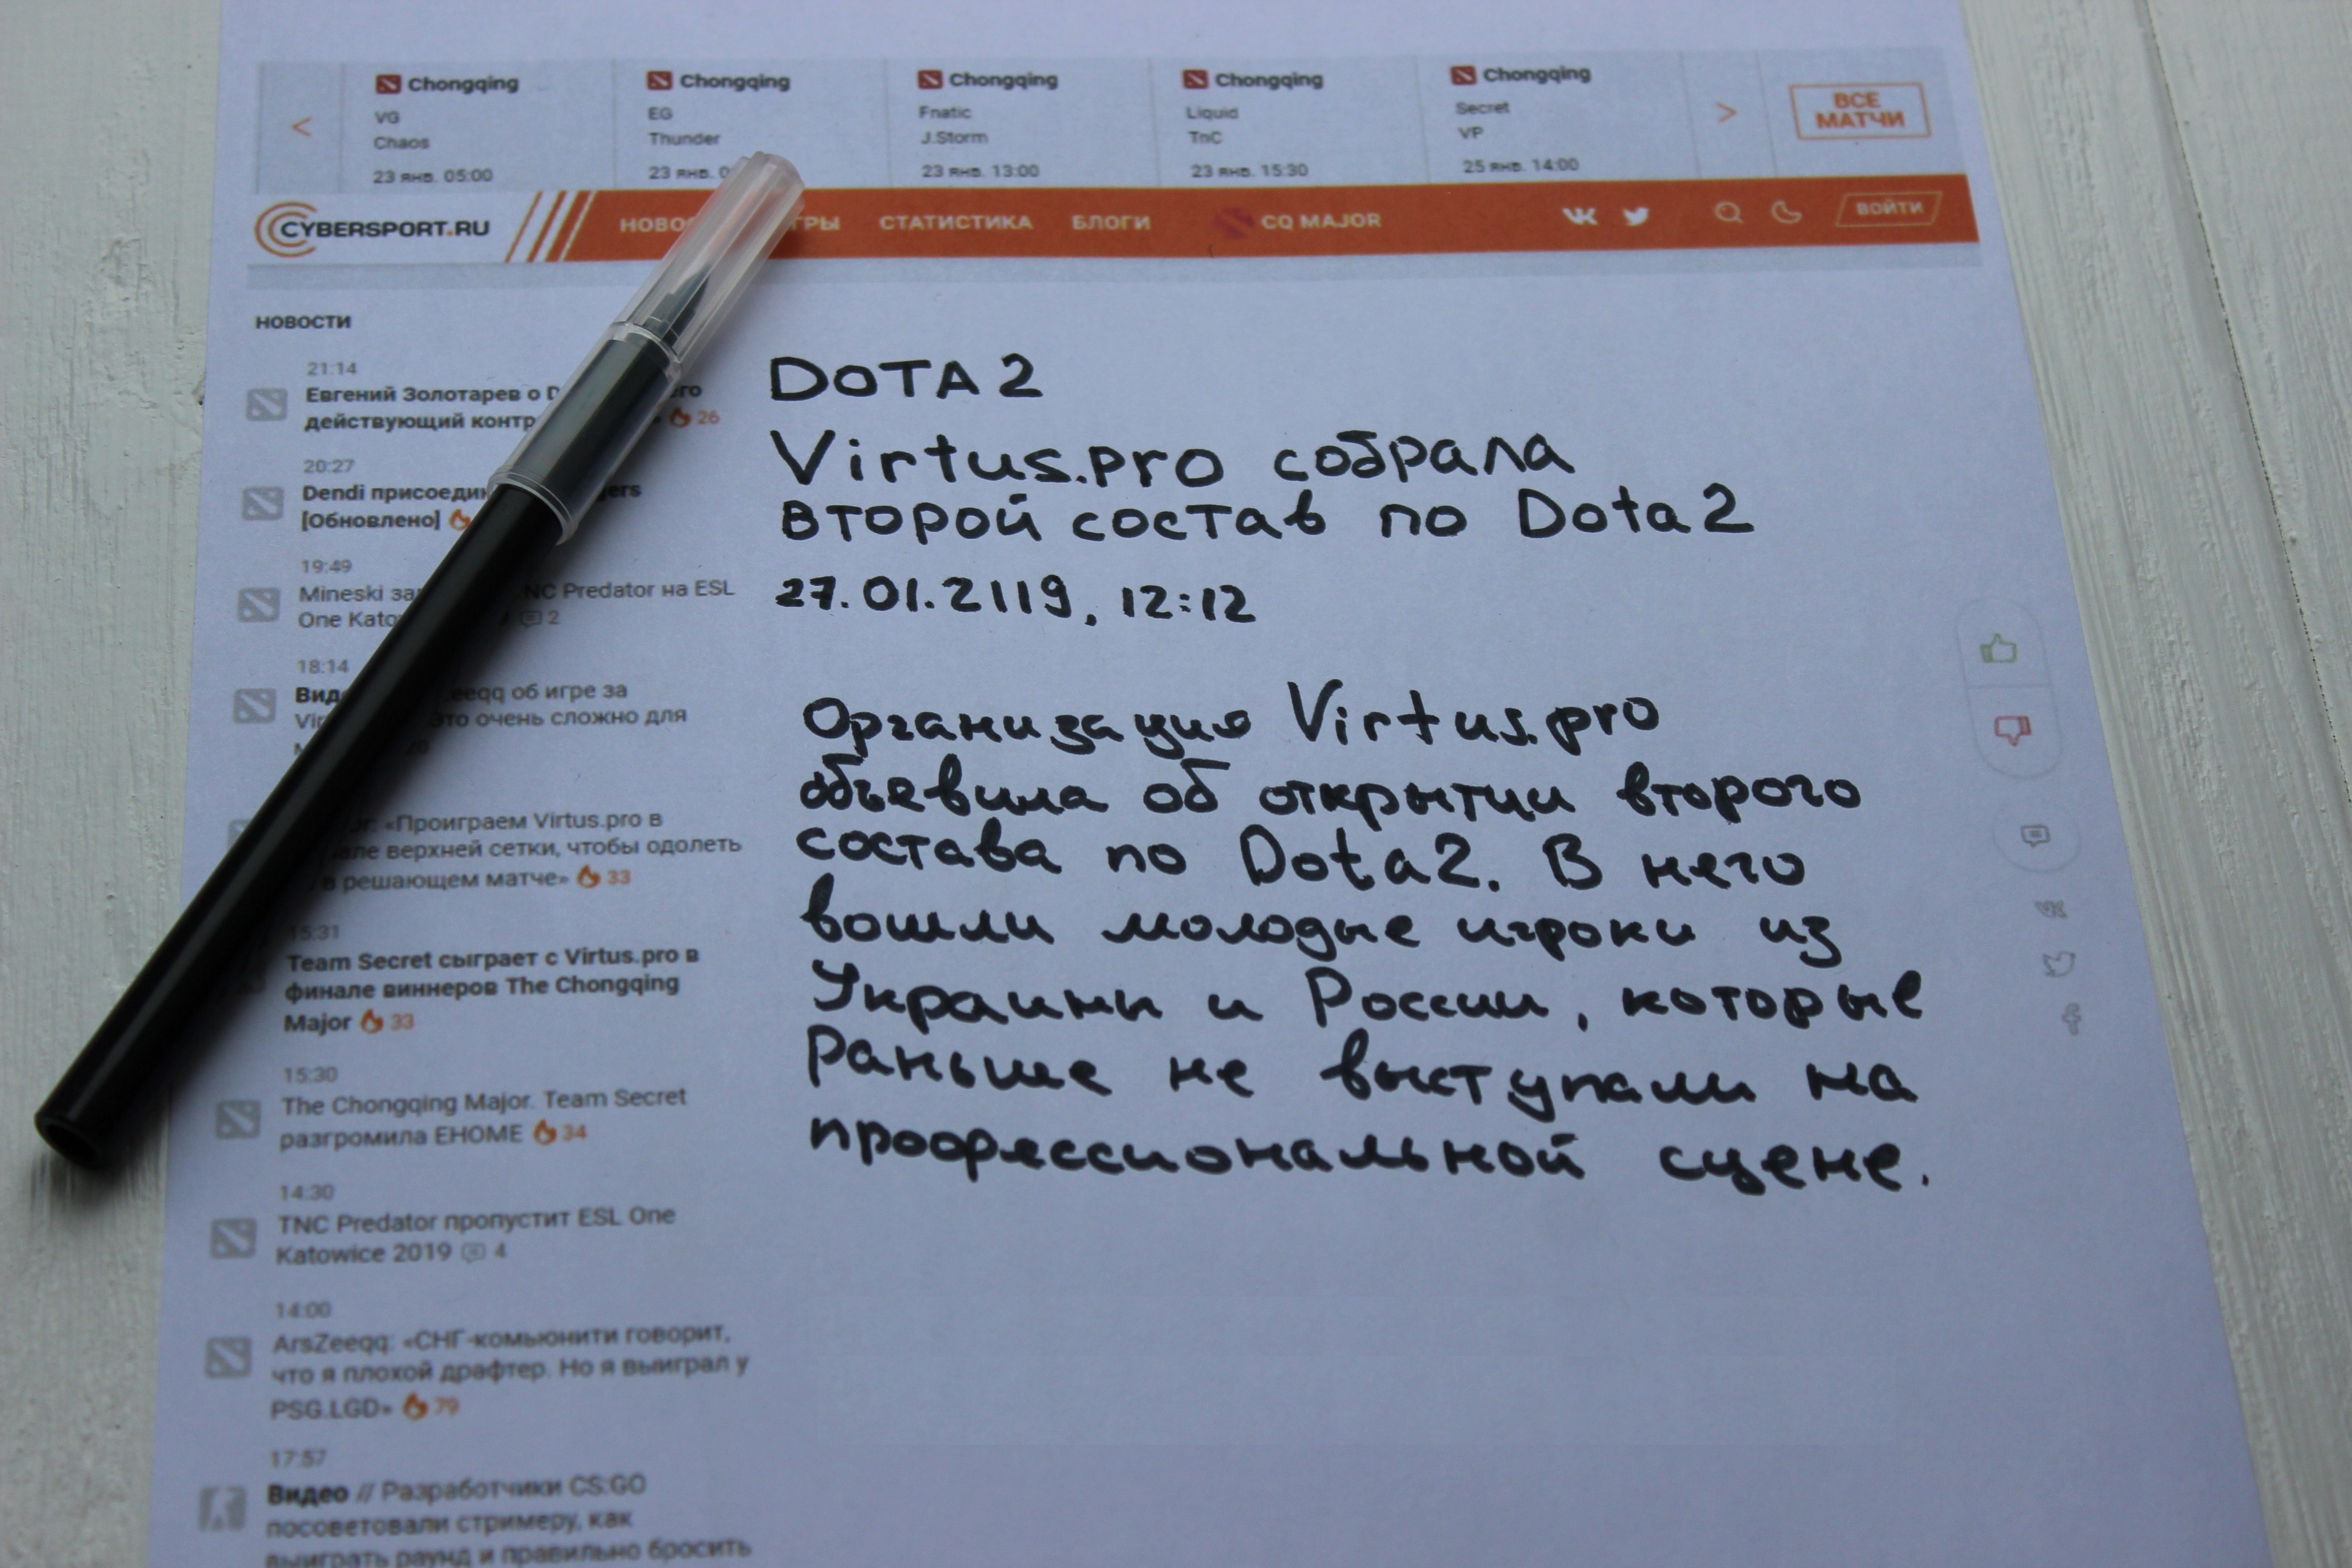 Chongqing
VG
Chaos
23 янв. 05:00
Chongqing
EG
Thunder
23 янв.
Chongqing
Fnatic
J.Storm
23 янв. 13:00
Chongqing
Liquid
TnC
23 янв. 15:30
Chongqing
Secret
VP
25 янв. 14:00
ВСЕ
МАТЧИ
CYBERSPORT.RU
СТАТИСТИКА
БЛОГИ
CQ MAJOR
ВОЙТИ
НОВОСТИ
21:14
Евгений Золотарев о
действующий
26
20:27
Dendi
[Обновлено]
19:49
Mineski Predator на ESL
One
2
18:14
об игре за
это очень сложно для
«Проиграем Virtus.pro в
верхней сетки, чтобы одолеть
в решающем матче» 33
15:31
Team Secret сыграет с Virtus.pro в
финале виннеров The Chongqing
Major 33
15:30
The Chongqing Major. Team Secret
разгромила EHOME 34
14:30
TNC Predator пропустит ESL One
Katowice 2019 4
14:00
ArsZeeqq: «СНГ-комьюнити говорит,
что я плохой драфтер. Но я выиграл у
PSG.LGD» 79
17:57
Видео // Разработчики CS:GO
посоветовали стримеру, как
выиграть раунд и правильно бросить
DOTA 2
Virtus.pro собрала
второй состав по Dota 2
27.01.2119, 12:12
Организация Virtus.pro
объевила об открытии второго
состава по Dota 2. В него
вошли молодые игроки из
Украины и России, которые
Раньше не выступали на
профессиональной сцене.